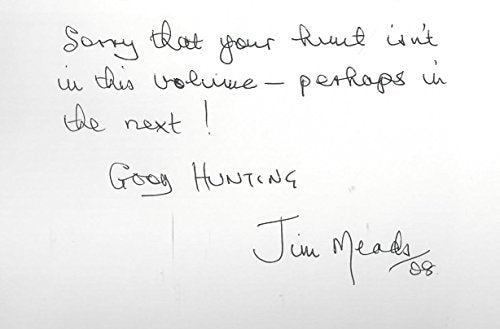 Sorry that your hunt isn't
in this volume — perhaps in
the next !
GOOD HUNTING
Jim Meads/08